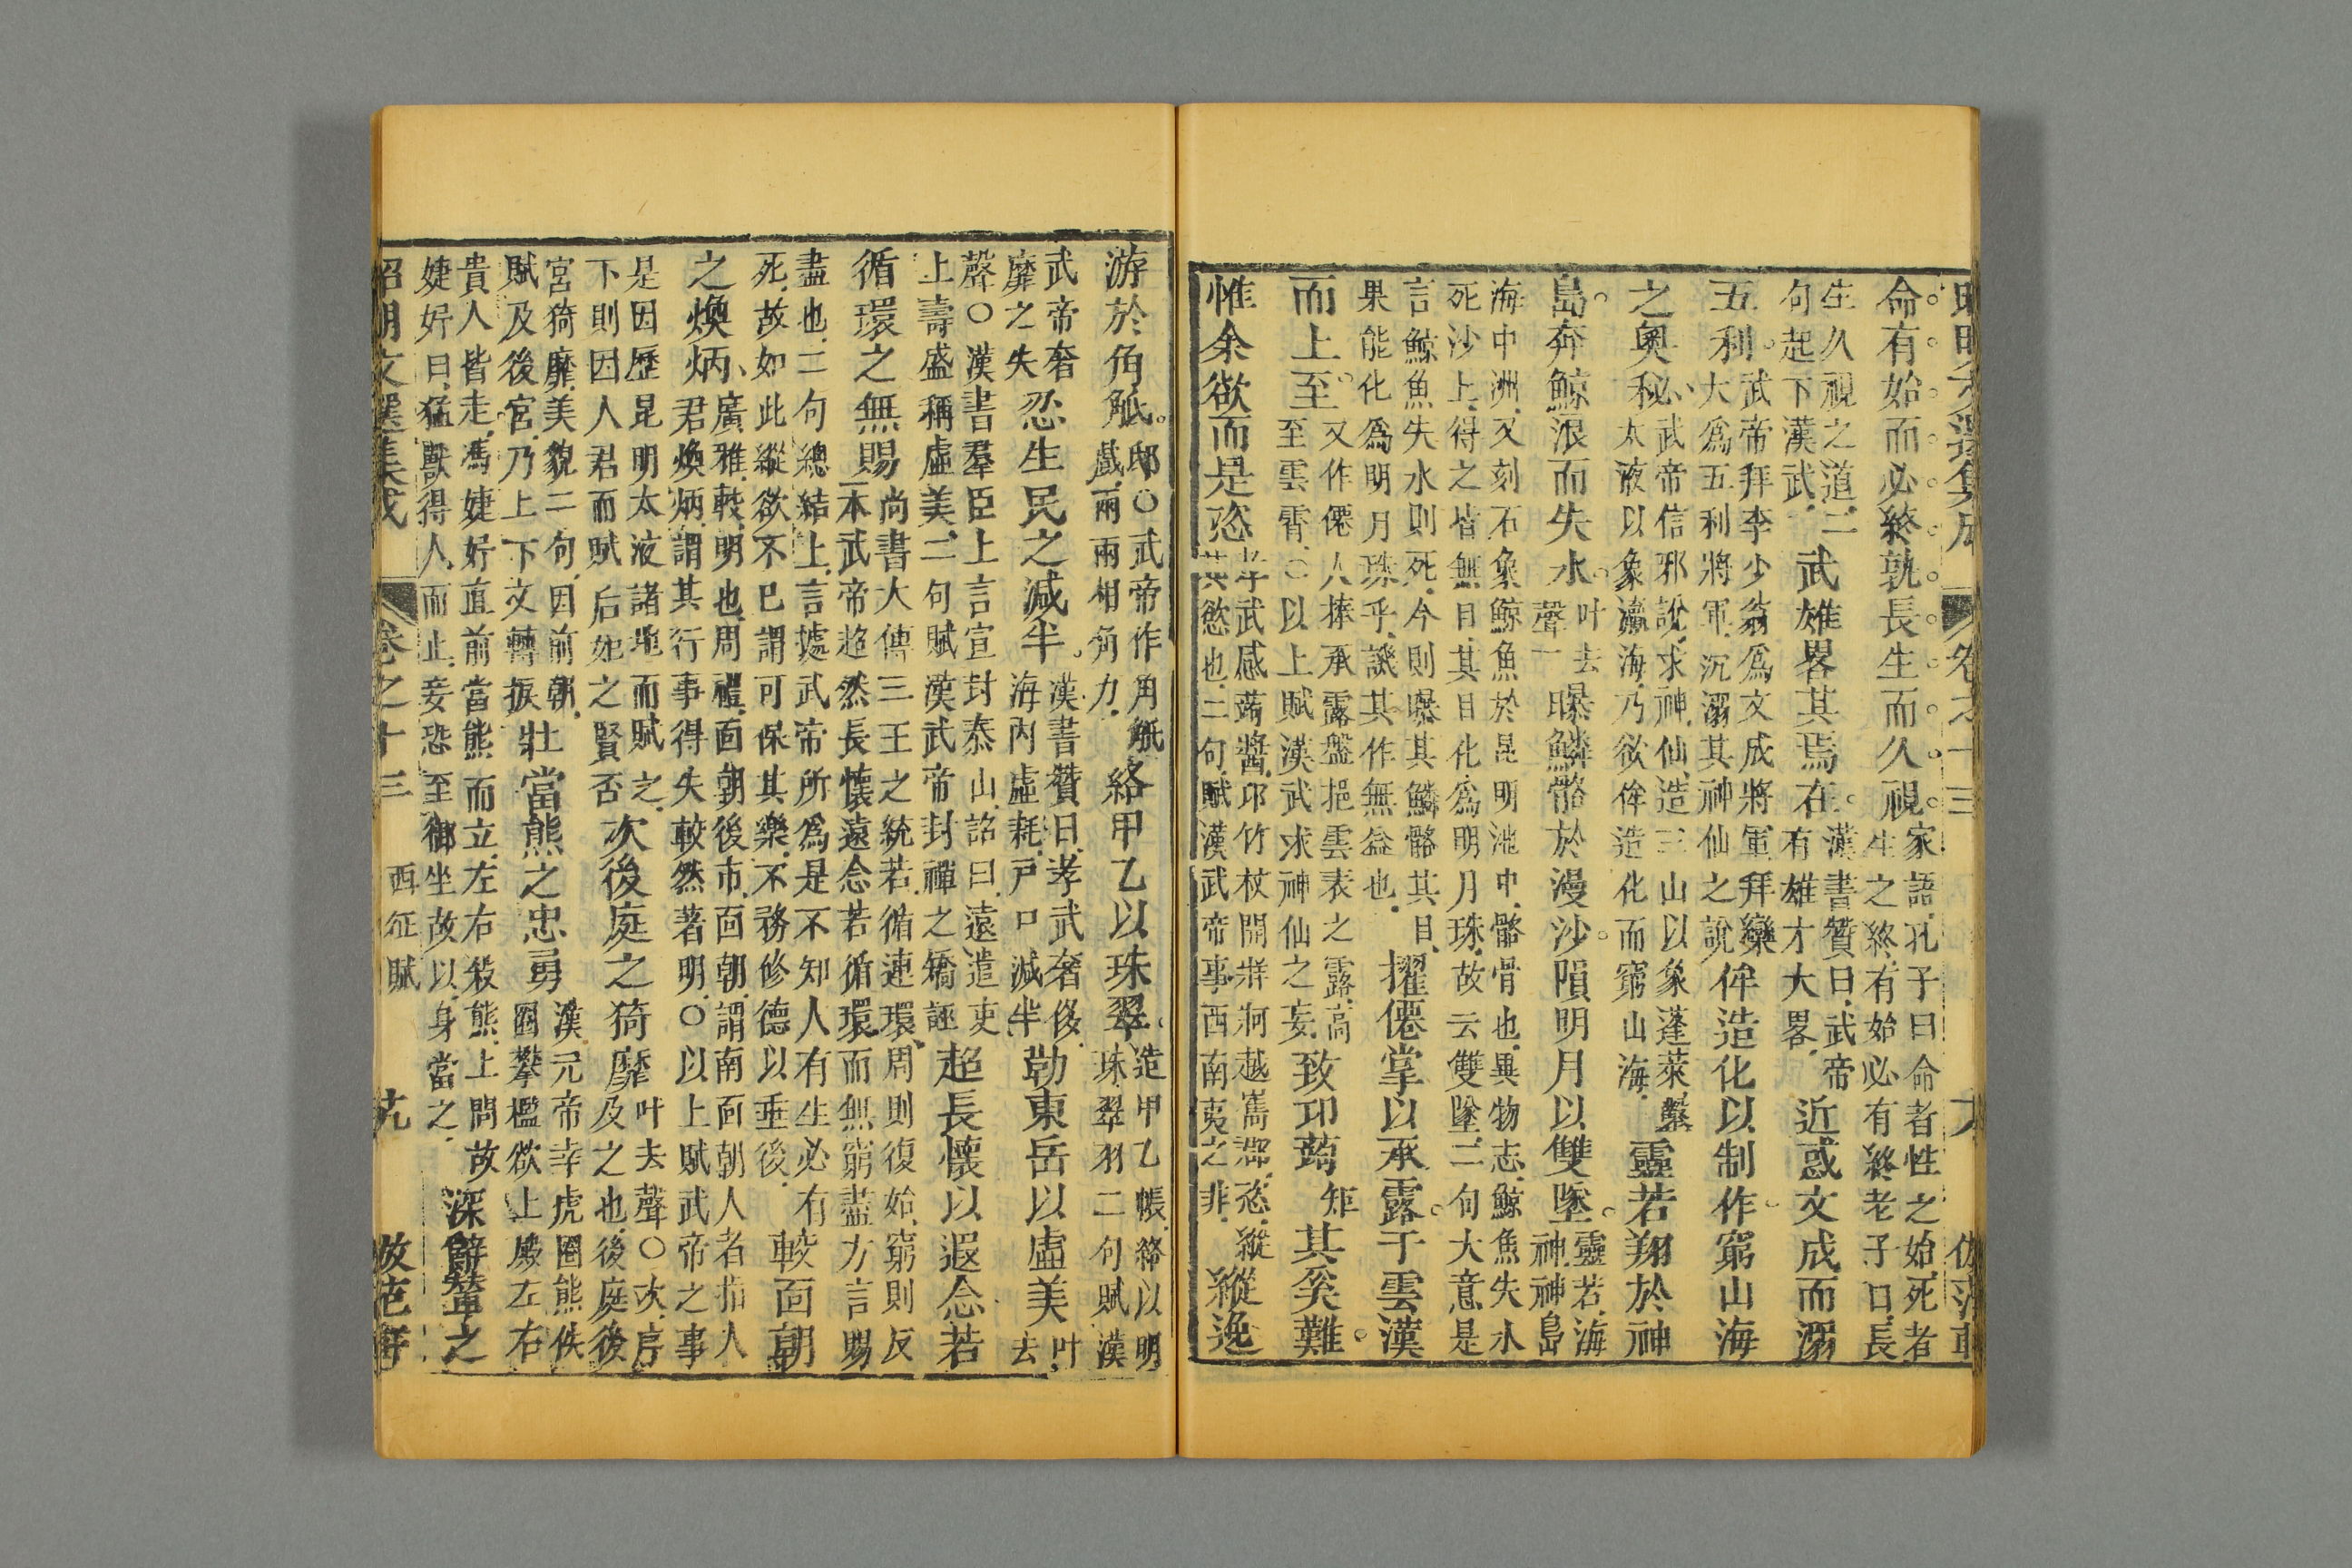 昭明文選集成 卷之十三 六 仿范軒
命有始而必終孰長生而久視家語孔子曰命者性之始死者
生之終有始必有終老子曰長
生久視之道二
句起下漢武武雄畧其焉在漢書贊曰武帝
有雄才大畧近惑文成而溺
五利武帝拜李少翁爲文成將軍拜欒
大爲五利將軍沉溺其神仙之說侔造化以制作窮山海
之奧秘武帝信邪說求神仙造三山以象蓬萊鑿
太液以象瀛海乃欲侔造化而窮山海靈若翔於神
島奔鯨浪而失水叶去
聲一曝鱗骼於漫沙隕明月以雙墜靈若海
神神島
海中洲又刻石象鯨魚於昆明池中骼骨也異物志鯨魚失水
死沙上得之皆無目其目化爲明月珠故云雙墜二句大意是
言鯨魚失水則死今則曝其鱗骼其目
果能化爲明月珠乎譏其作無益也擢僊掌以承露于雲漢
而上至又作僊人捧承露盤挹雲表之露高
至雲霄○以上賦漢武求神仙之妄致邛蒟矩其奚難
惟余欲而是恣孝武感蒟醬邛竹杖開牂牁越嶲郡恣縱
其慾也二句賦漢武帝事西南夷之非縱逸
游於角觝邸○武帝作角觝
戲兩兩相角力絡甲乙以珠翠造甲乙帳絡以明
珠翠羽二句賦漢
武帝奢
靡之失忍生民之減半漢書贊曰孝武奢侈
海内虛耗戸口減半勒東岳以虛美叶
去
聲○漢書羣臣上言宣封泰山詔曰遠遣吏
上壽盛稱虛美二句賦漢武帝封禪之矯誣超長懷以遐念若
循環之無賜尚書大傳三王之統若循連環周則復始窮則反
本武帝超然長懷遠念若循環而無窮盡方言賜
盡也二句總結上言據武帝所爲是不知人有生必有
死故如此縱欲不已謂可保其樂不務修德以垂後較面朝
之煥炳廣雅較明也周禮面朝後市面朝謂南面朝人者指人
君煥炳謂其行事得失較然著明○以上賦武帝之事
是因歷昆明太液諸地而賦之
下則因人君而賦后妃之賢否次後庭之猗靡叶去聲○次序
及之也後庭後
宮猗靡美貌二句因前朝
賦及後宮乃上下文轉捩壯當熊之忠勇漢元帝幸虎圈熊佚
圈攀檻欲上殿左右
貴人皆走馮婕妤直前當熊而立左右殺熊上問故
婕妤曰猛獸得人而止妾恐至御坐故以身當之深辭輦之
昭明文選集成 卷之十三 西征賦 仿范軒